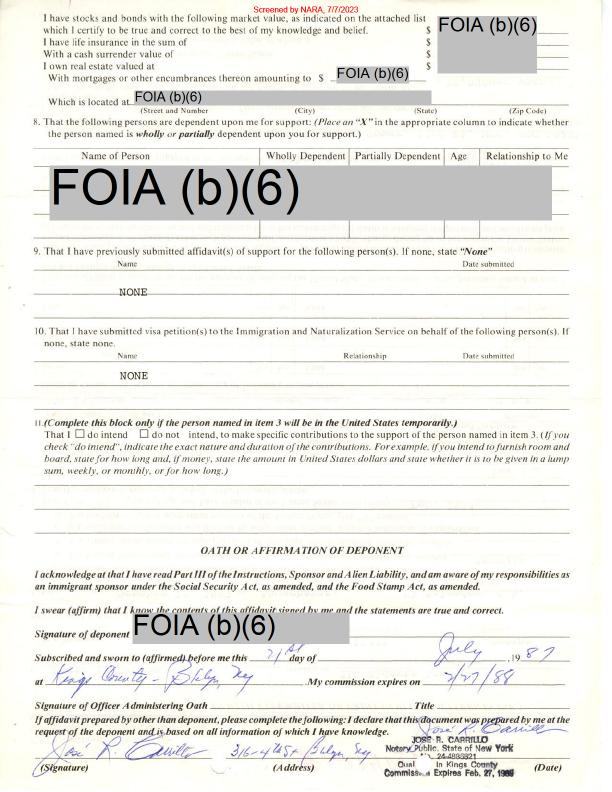 Screened by NARA, 7/7/2023
I have stocks and bonds with the following market value, as indicated on the attached list
which I certify to be true and correct to the best of my knowledge and belief. $ FOIA (b)(6)
I have life insurance in the sum of $
With a cash surrender value of $
I own real estate valued at $
With mortgages or other encumbrances thereon amounting to $ FOIA (b)(6)
Which is located at FOIA (b)(6)
(Street and Number) (City) (State) (Zip Code)
8. That the following persons are dependent upon me for support: (Place an "X" in the appropriate column to indicate whether
the person named is wholly or partially dependent upon you for support.)
Name of Person Wholly Dependent Partially Dependent Age Relationship to Me
FOIA (b)(6)
9. That I have previously submitted affidavit(s) of support for the following person(s). If none, state "None"
Name Date submitted
NONE
10. That I have submitted visa petition(s) to the Immigration and Naturalization Service on behalf of the following person(s). If
none, state none.
Name Relationship Date submitted
NONE
11.(Complete this block only if the person named in item 3 will be in the United States temporarily.)
That I ☐ do intend ☐ do not intend, to make specific contributions to the support of the person named in item 3. (If you
check "do intend", indicate the exact nature and duration of the contributions. For example, if you intend to furnish room and
board, state for how long and, if money, state the amount in United States dollars and state whether it is to be given in a lump
sum, weekly, or monthly, or for how long.)
OATH OR AFFIRMATION OF DEPONENT
I acknowledge at that I have read Part III of the Instructions, Sponsor and Alien Liability, and am aware of my responsibilities as
an immigrant sponsor under the Social Security Act, as amended, and the Food Stamp Act, as amended.
I swear (affirm) that I know the contents of this affidavit signed by me and the statements are true and correct.
Signature of deponent FOIA (b)(6)
Subscribed and sworn to (affirmed) before me this 21st day of July ,19 87
at Kings County - Bklyn, Ny My commission expires on 2/27/88
Signature of Officer Administering Oath Title
If affidavit prepared by other than deponent, please complete the following: I declare that this document was prepared by me at the
request of the deponent and is based on all information of which I have knowledge. José R. Carrillo
José R. Carrillo 316-4th St Bklyn, Ny
JOSE R. CARRILLO
Notary Public, State of New York
24-4886821
Qual In Kings County
Expires Feb. 27,
(Signature) (Address) (Date)